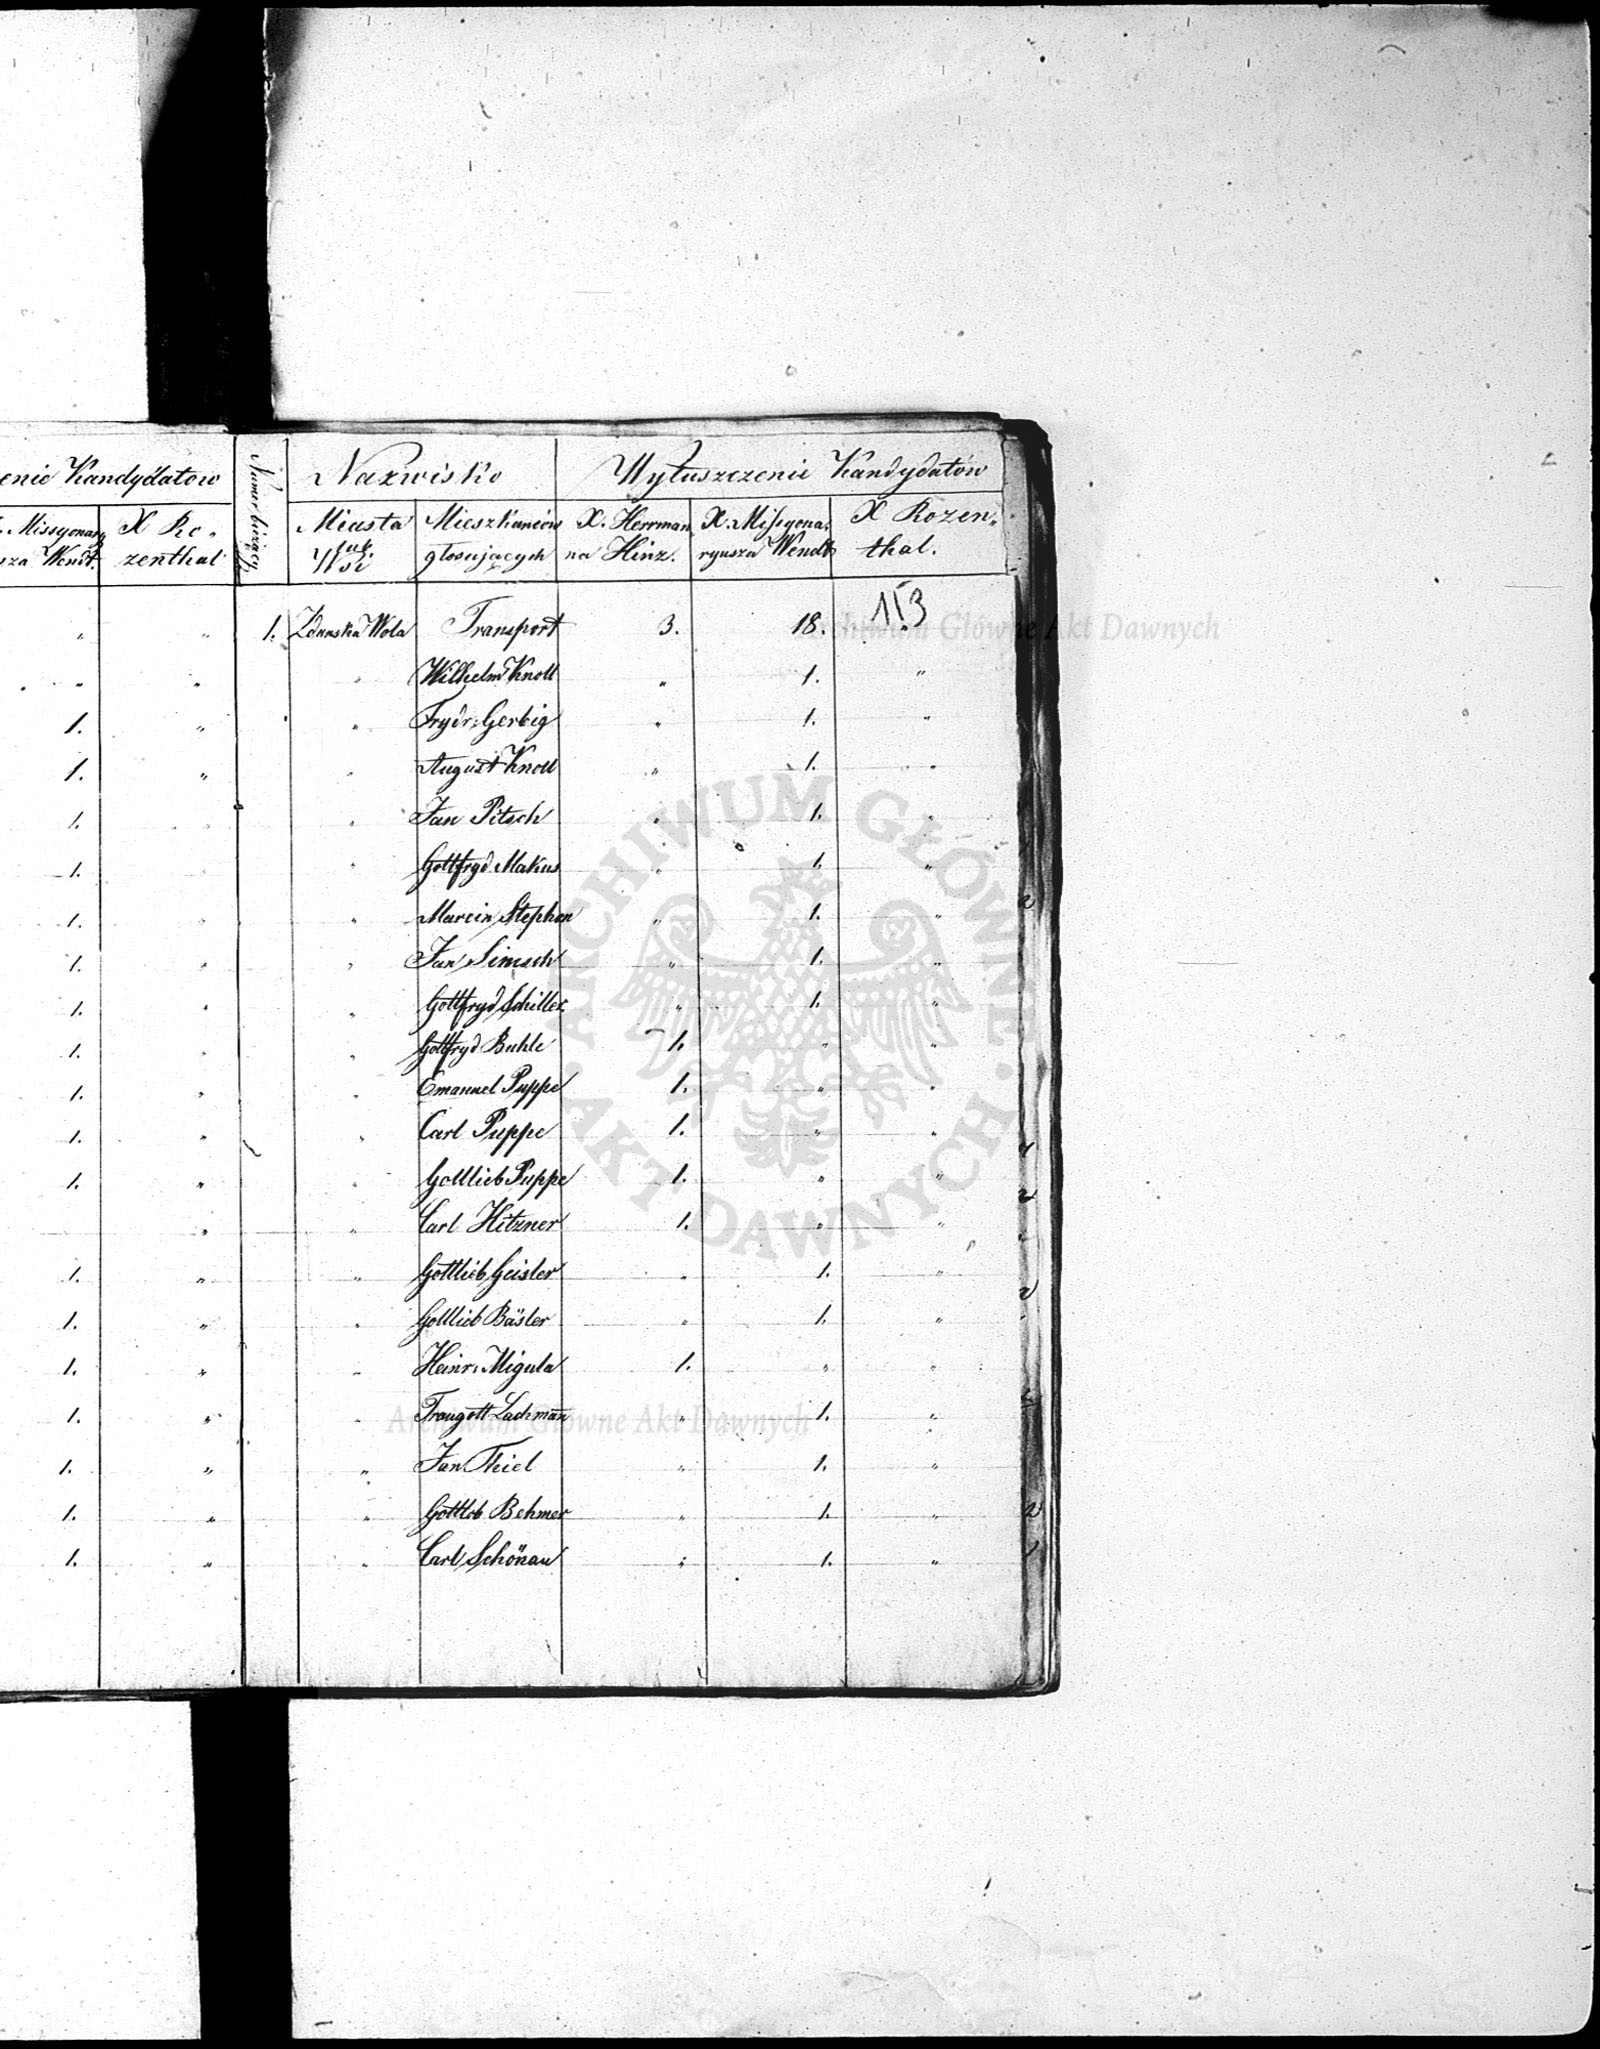 enie Kandydatow
Missyonary
sza Wendt.
X Ro„
zenthal
„ „
„ „
1. „
1. „
1. „
1. „
1. „
1. „
1. „
1. „
1. „
1. „
1. „
„
1. „
1. „
1. „
1. „
1. „
1. „
1. „
Numer bieżący
Nazwisko
Wyłuszczenie Kandydatów
Miasta
lub
Wsi
Mieszkańców
głosujących
X. Herrman
na Hinz.
X. Missyona„
ryusza Wendt
X Rozen„
thal.
113
1. Zdunska Wola Transport 3. 18.
„ Wilhelm Knoll „ 1. „
„ Frydr: Gerbig „ 1. „
„ August Knoll „ 1. „
„ Jan Pitsch „ 1. „
„ Gottfryd Makus „ 1. „
„ Marcin Stephan „ 1. „
„ Jan Simsch „ 1. „
„ Gottfryd Schiller „ 1. „
„ Gottfryd Buhle 1. „ „
„ Emanuel Puppe 1. „ „
„ Carl Puppe 1. „ „
„ Gottlieb Puppe 1. „ „
„ Carl Hitzner 1. „ „
„ Gottlieb Geisler „ 1. „
„ Gottlieb Bäsler „ 1. „
„ Heinr: Migula 1. „ „
„ Traugott Lachman̄ „ 1. „
„ Jan Thiel „ 1. „
„ Gottlob Behmer „ 1. „
„ Carl Schönau „ 1. „
Archiwum Główne Akt Dawnych
ARCHIWUM GŁÓWNE · AKT DAWNYCH ·
Archiwum Główne Akt Dawnych